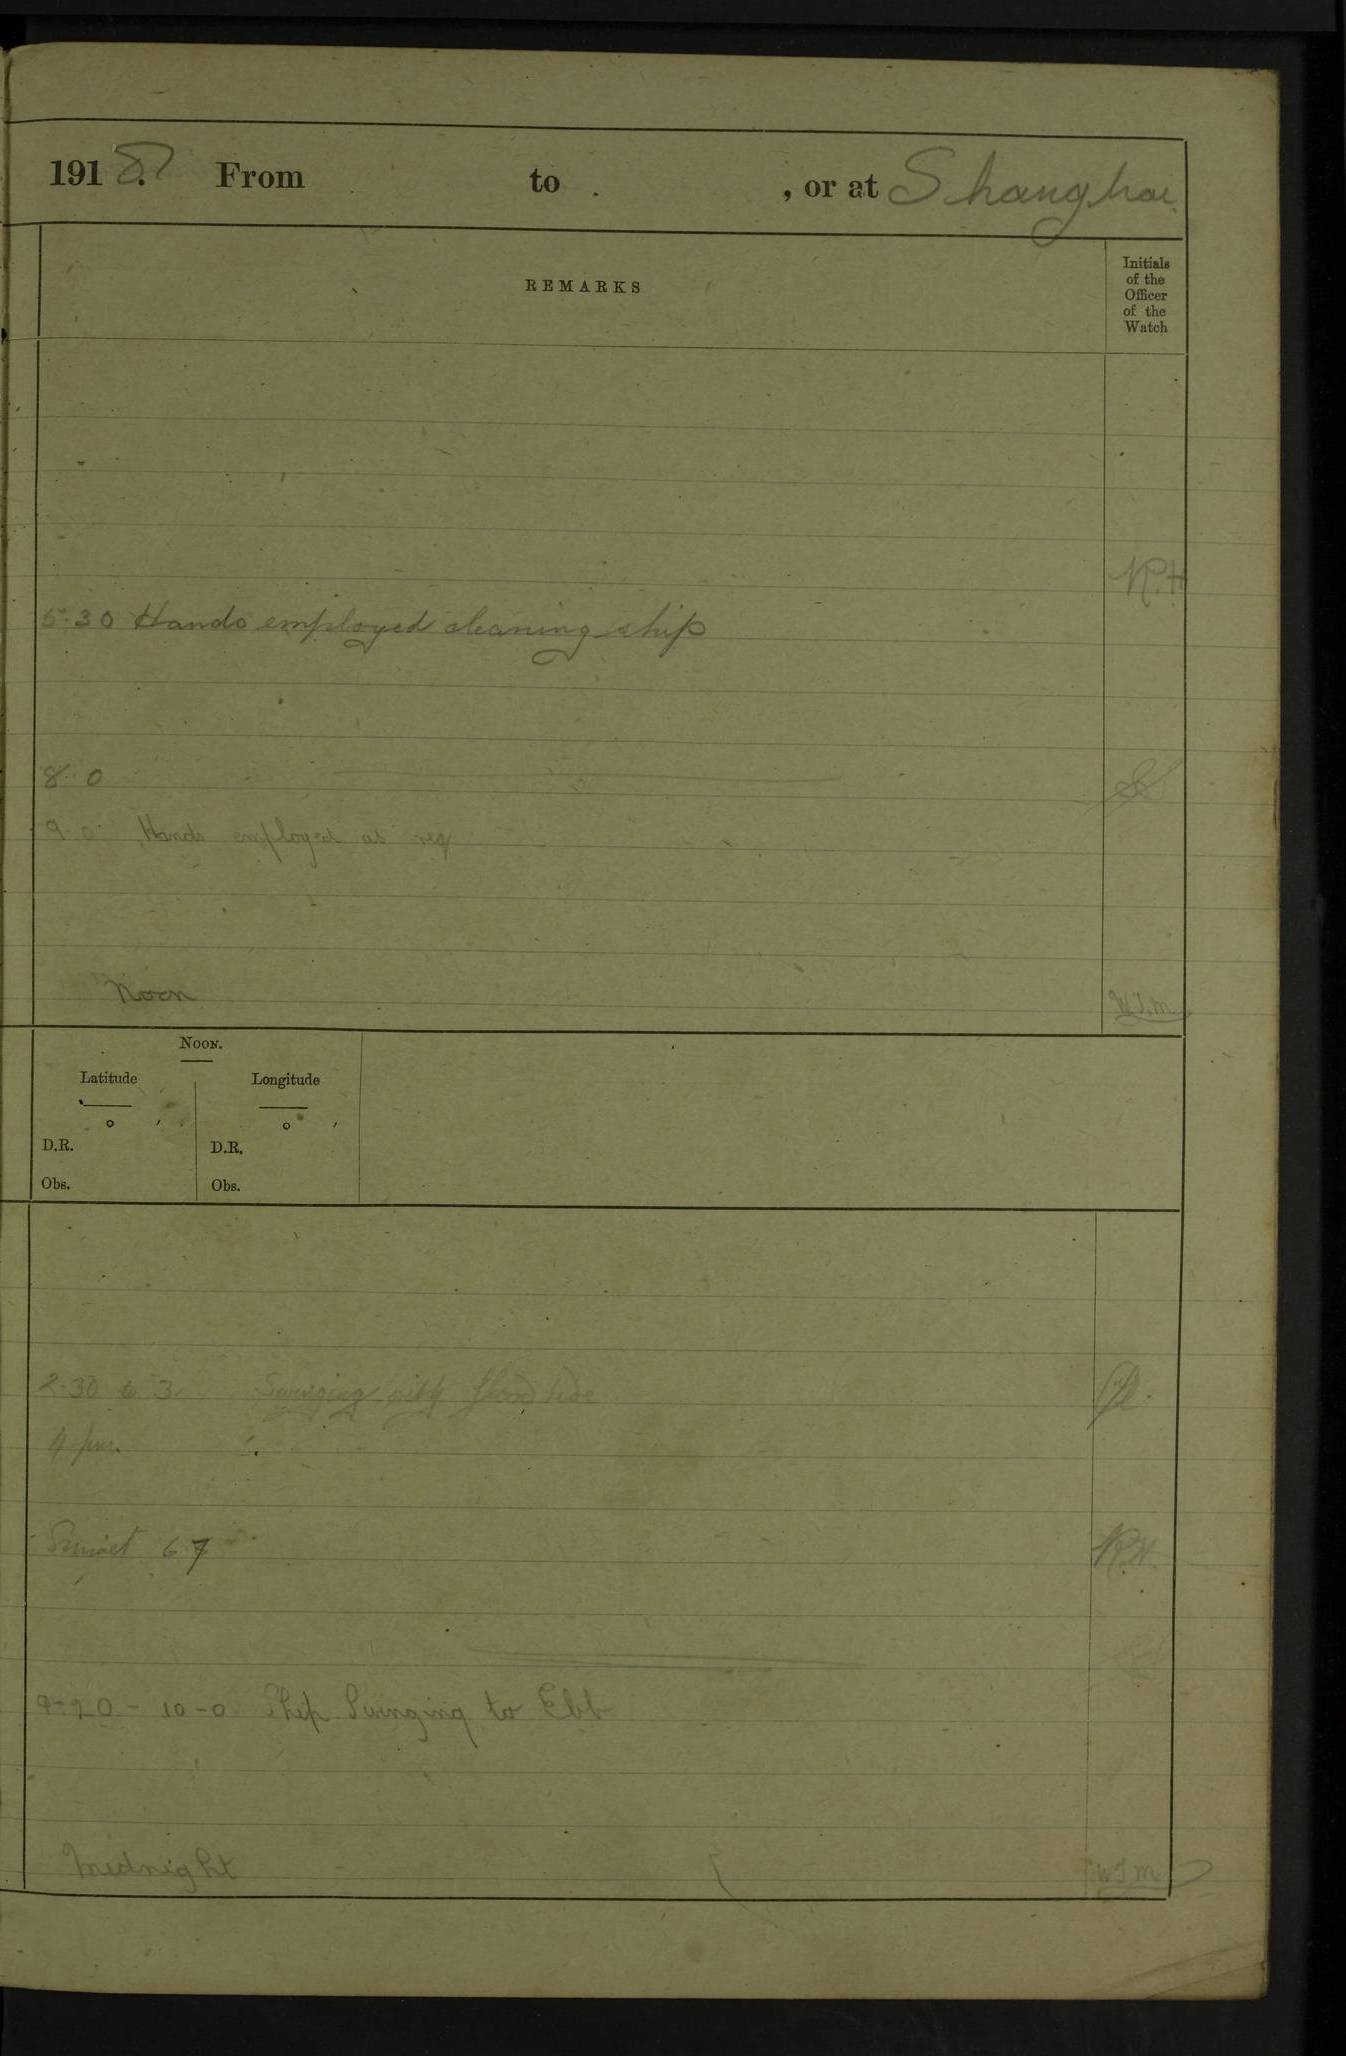 1918. From to , or at Shanghai
REMARKS
Initials
of the
Officer
of the
Watch
5.30 Hands employed cleaning ship
8.0
9.0 Hands employed as req
Noon
W.J.M
NOON.
Latitude Longitude
° ′ ° ′
D.R. D.R.
Obs. Obs.
2.30 to 3 Swinging with flood tide
4 pm.
Sunset 6.7
9-20 - 10-0 Ship Swinging to Ebb
Midnight
W.J.M